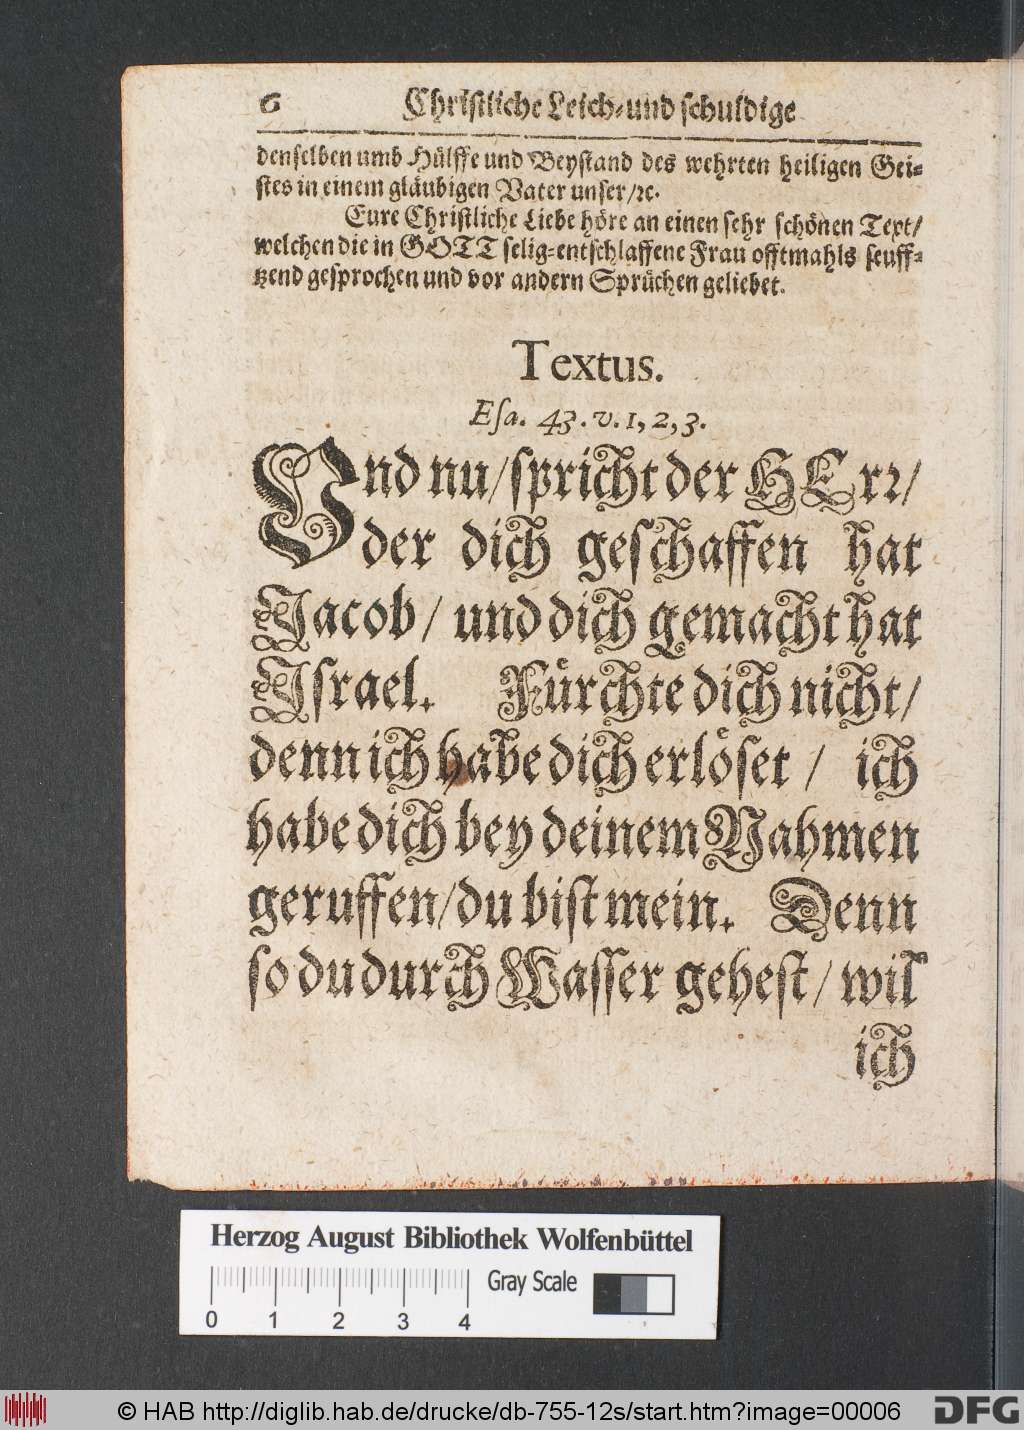 6 Christliche Leich-und schuldige
denselben umb Hülffe und Beystand des wehrten heiligen Gei-
stes in einem gläubigen Vater unser/ꝛc.
Eure Christliche Liebe höre an einen sehr schönen Text/
welchen die in GOTT selig-entschlaffene Frau offtmahls seuff-
tzend gesprochen und vor andern Sprüchen geliebet.
Textus.
Esa. 43. v. 1, 2, 3.
Vnd nu/spricht der HErꝛ/
der dich geschaffen hat
Jacob/ und dich gemacht hat
Jsrael. Fürchte dich nicht/
denn ich habe dich erlöset / ich
habe dich bey deinem Nahmen
geruffen/du bist mein. Denn
so du durch Wasser gehest/ wil
ich
Herzog August Bibliothek Wolfenbüttel
Gray Scale
0 1 2 3 4
© HAB http://diglib.hab.de/drucke/db-755-12s/start.htm?image=00006
DFG